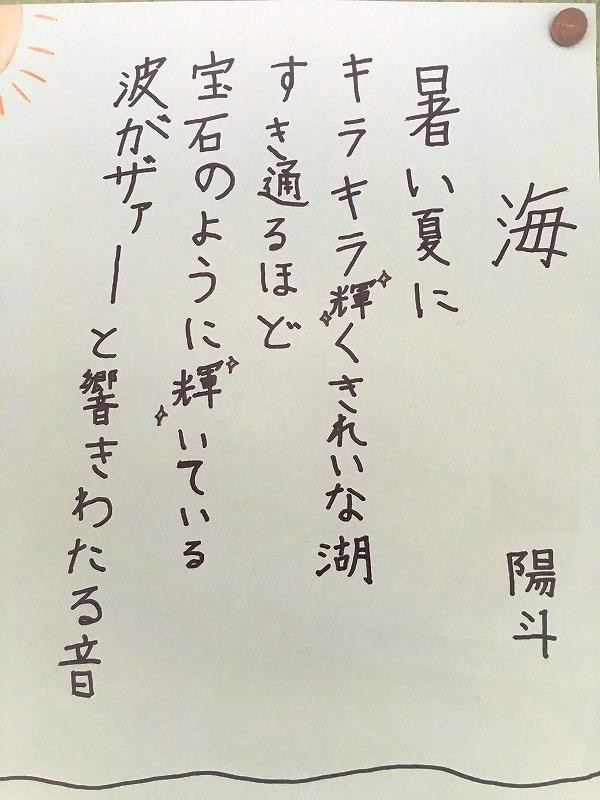 海
陽斗
暑い夏に
キラキラ輝くきれいな湖
すき通るほど
宝石のように輝いている
波がザァーと響きわたる音